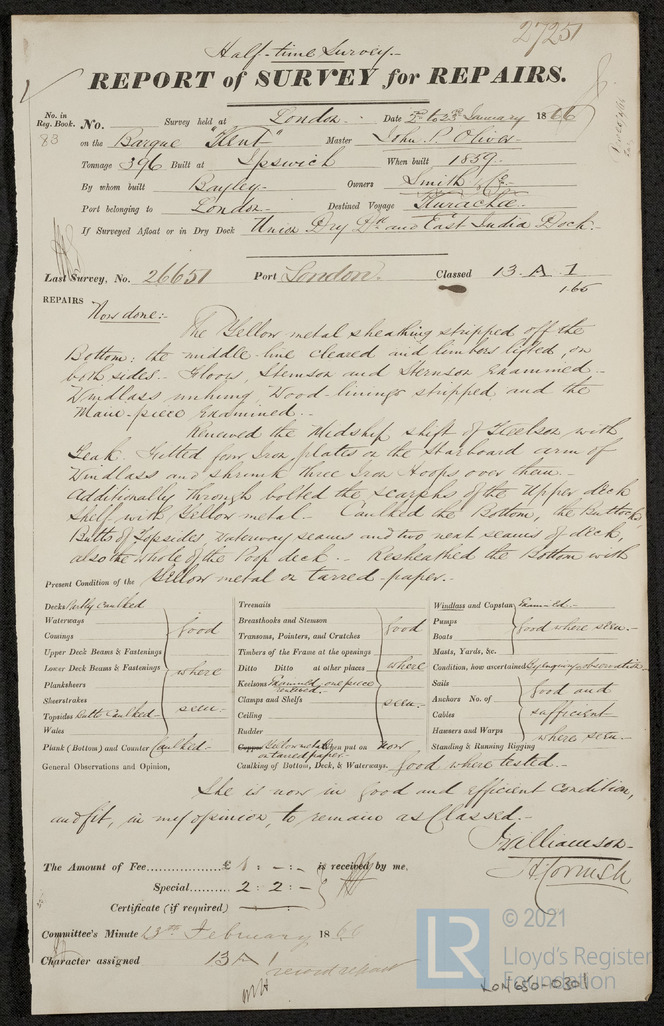 27251
Half-time Survey.-
REPORT of SURVEY for REPAIRS.
No. in Reg. Book. 83
No. Survey held at London. Date 2d to 23d January 1866
on the Barque "Kent" Master John P. Oliver
Tonnage 396 Built at Ipswich When built 1839.
By whom built Bayley- Owners Smith & Co.-
Port belonging to London- Destined Voyage Kurachee
If Surveyed Afloat or in Dry Dock Union Dry Dk and East India Dock-
Last Survey, No. 26651 Port London. Classed 13. A. 1
1.66
REPAIRS Now done:-
The Yellow metal sheathing stripped off the
Bottom: the middle line cleared and limbers lifted, on
both sides.- Floors, Stemson and Sternson examined.-
Windlass unhung, Wood-linings stripped and the
Main-piece examined.-
Renewed the Midship shift of Keelson with
Teak. Fitted four Iron plates on the Starboard arm of
Windlass and shrunk three Iron Hoops over them.-
Additionally through bolted the scarphs of the Upper deck
Shelf with Yellow metal.- Caulked the Bottom, the Buttock,
Butts of Topsides, Waterway seams and two next seams of deck,
also the whole of the Poop deck.- Resheathed the Bottom with
Present Condition of the Yellow metal on tarred-paper.-
Decks Partly Caulked
Waterways
Comings
Upper Deck Beams & Fastenings
Lower Deck Beams & Fastenings
Planksheers
Sheerstrakes
Topsides Butts Caulked-
Wales
Plank (Bottom) and Counter Caulked-
good
where
seen.-
Treenails
Breasthooks and Stemson
Transoms, Pointers, and Crutches
Timbers of the Frame at the openings
Ditto Ditto at other places
Keelsons Examined, one piece renewed.-
Clamps and Shelfs
Ceiling
Rudder
good
where
seen.-
Copper Yellow metal When put on Now
on tarred paper-
Caulking of Bottom, Deck, & Waterways. good where tested.-
Windlass and Capstan Examined.-
Pumps
Boats
Masts, Yards, &c.
good where seen.-
Condition, how ascertained By enquiry & observation
Sails
Anchors No. of
Cables
Hawsers and Warps
Standing & Running Rigging
good and
sufficient
where seen.-
General Observations and Opinion,
She is now in good and efficient condition,
and fit, in my opinion, to remain as Classed.-
Williamson-
H Cornish
The Amount of Fee £ 1 : - : - is received by me,
Special 2 : 2 : -
Certificate (if required)
Committee's Minute 13th February 1866
Character assigned 13 A 1
record report
© 2021
Lloyd's Register
Foundation
LR
LON650-0301